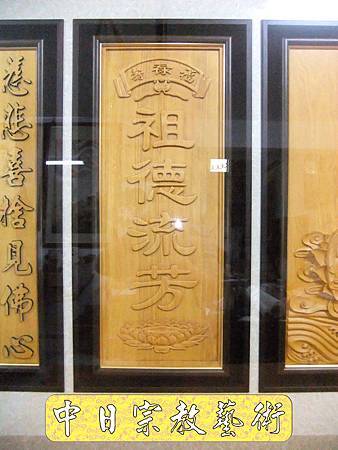 福祿壽
祖德流芳
慈悲喜捨見佛心
中日宗教藝術